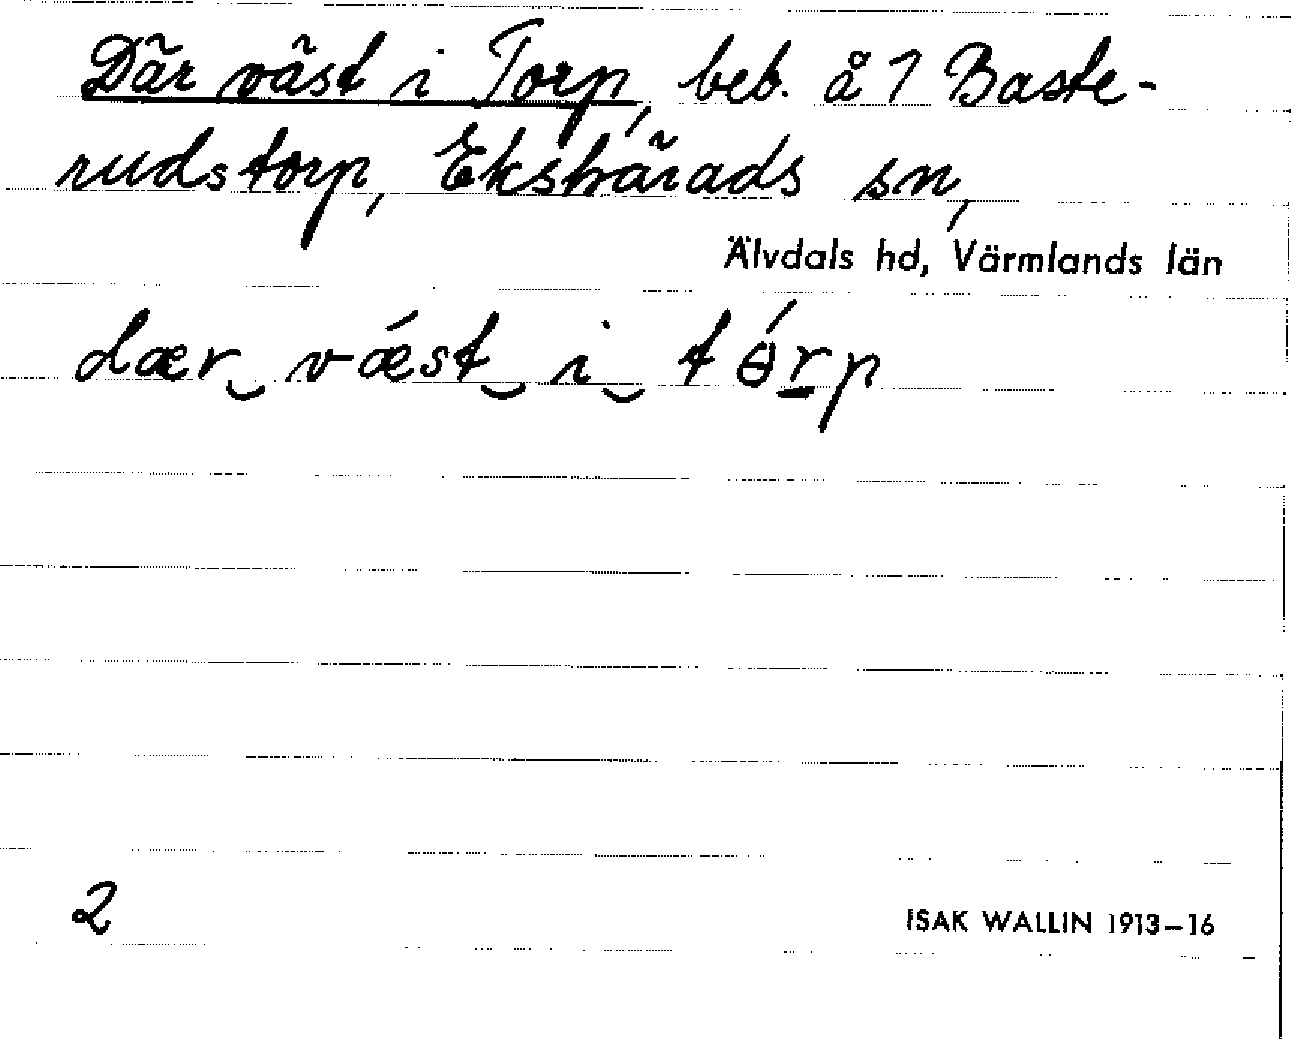 Där väst i Torp, beb. å 7 Baste-
rudstorp, Ekshärads sn,
Älvdals hd, Värmlands län
dær‿ vǽst‿ i‿ tɵ́r̲p
2
ISAK WALLIN 1913–16